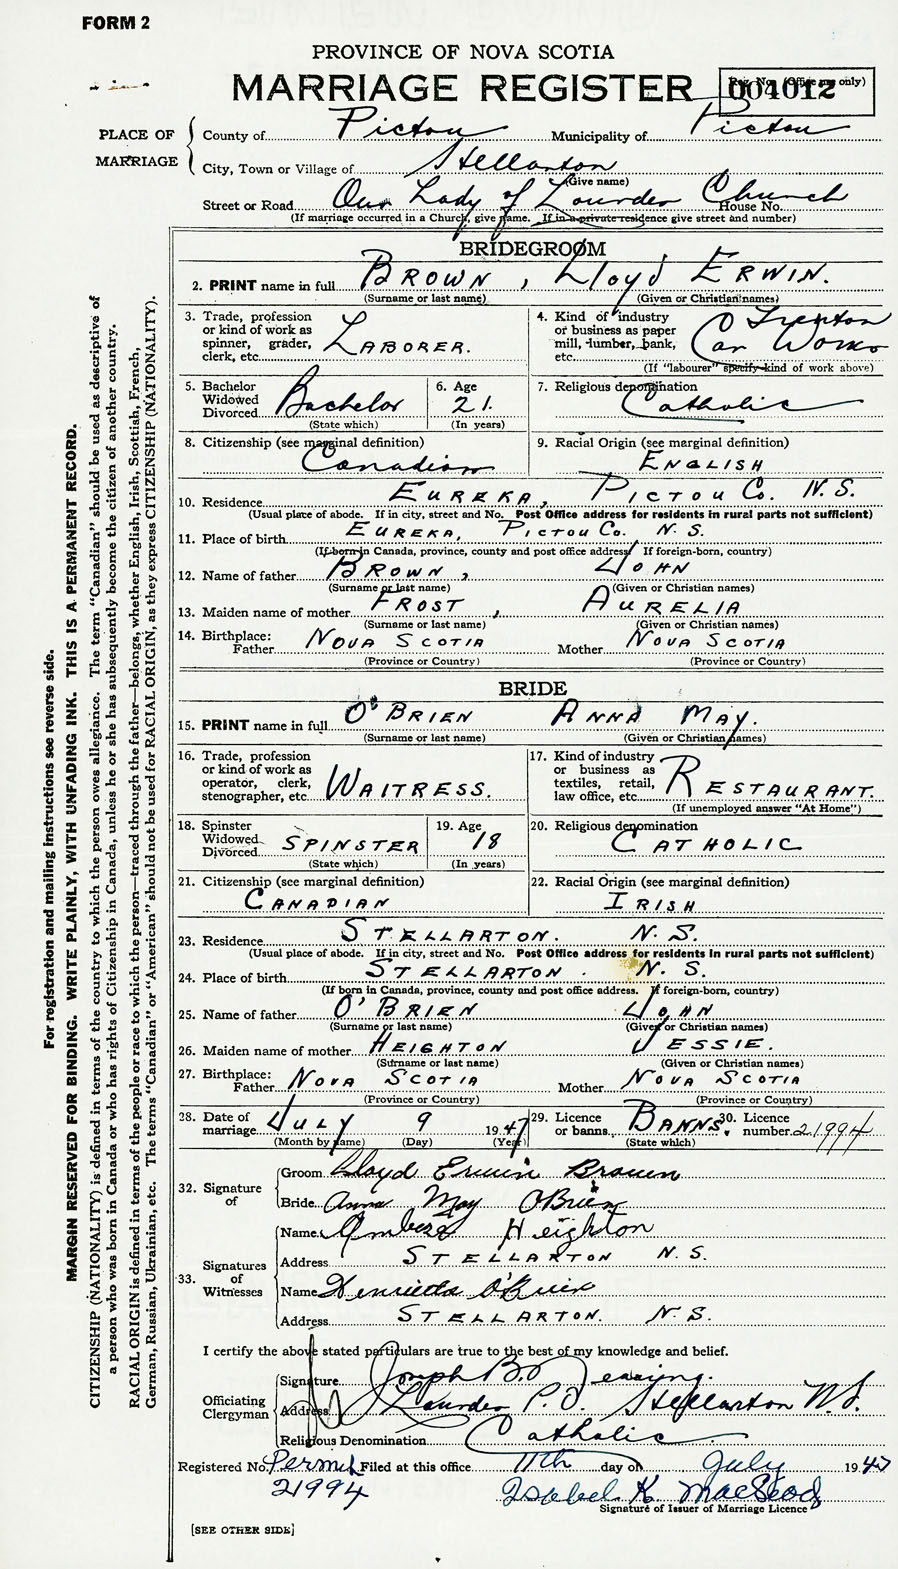 FORM 2
PROVINCE OF NOVA SCOTIA
MARRIAGE REGISTER
Reg. No. (Office use only)
004012
PLACE OF MARRIAGE
County of Pictou Municipality of Pictou
City, Town or Village of Stellarton
(Give name)
Street or Road Our Lady of Lourdes Church House No.
(If marriage occurred in a Church, give name. If in a private residence give street and number)
BRIDEGROOM
2. PRINT name in full BROWN, Lloyd ERWIN.
(Surname or last name) (Given or Christian names)
3. Trade, profession or kind of work as spinner, grader, clerk, etc. LABORER.
4. Kind of industry or business as paper mill, lumber, bank, etc. Trenton Car Works
(If "labourer" specify kind of work above)
5. Bachelor Widowed Divorced Bachelor
(State which)
6. Age 21.
(In years)
7. Religious denomination Catholic
8. Citizenship (see marginal definition) Canadian
9. Racial Origin (see marginal definition) ENGLISH
10. Residence EUREKA, PICTOU Co. N.S.
(Usual place of abode. If in city, street and No. Post Office address for residents in rural parts not sufficient)
11. Place of birth EUREKA, PICTOU Co. N.S.
(If born in Canada, province, county and post office address. If foreign-born, country)
12. Name of father BROWN, JOHN
(Surname or last name) (Given or Christian names)
13. Maiden name of mother FROST, AURELIA
(Surname or last name) (Given or Christian names)
14. Birthplace: Father NOVA SCOTIA Mother NOVA SCOTIA
(Province or Country) (Province or Country)
BRIDE
15. PRINT name in full O'BRIEN ANNA MAY.
(Surname or last name) (Given or Christian names)
16. Trade, profession or kind of work as operator, clerk, stenographer, etc. WAITRESS.
17. Kind of industry or business as textiles, retail, law office, etc. RESTAURANT.
(If unemployed answer "At Home")
18. Spinster Widowed Divorced SPINSTER
(State which)
19. Age 18
(In years)
20. Religious denomination CATHOLIC
21. Citizenship (see marginal definition) CANADIAN
22. Racial Origin (see marginal definition) IRISH
23. Residence STELLARTON. N.S.
(Usual place of abode. If in city, street and No. Post Office address for residents in rural parts not sufficient)
24. Place of birth STELLARTON. N.S.
(If born in Canada, province, county and post office address. If foreign-born, country)
25. Name of father O'BRIEN JOHN
(Surname or last name) (Given or Christian names)
26. Maiden name of mother HEIGHTON JESSIE.
(Surname or last name) (Given or Christian names)
27. Birthplace: Father NOVA SCOTIA Mother NOVA SCOTIA
(Province or Country) (Province or Country)
28. Date of marriage JULY 9 1947
(Month by name) (Day) (Year)
29. Licence or banns BANNS.
(State which)
30. Licence number 21994
32. Signature of
Groom Lloyd Erwin Brown
Bride Anna May O'Brien
33. Signatures of Witnesses
Name Heighton
Address STELLARTON N.S.
Name Henrietta O'Brien
Address STELLARTON. N.S.
I certify the above stated particulars are true to the best of my knowledge and belief.
Officiating Clergyman
Signature Joseph B.
Address Lourdes P.O. Stellarton N.S.
Religious Denomination Catholic
Registered No. Permit 21994 Filed at this office 11th day of July 1947
Isabel K. MacLeod
Signature of Issuer of Marriage Licence
[SEE OTHER SIDE]
For registration and mailing instructions see reverse side.
MARGIN RESERVED FOR BINDING. WRITE PLAINLY, WITH UNFADING INK. THIS IS A PERMANENT RECORD.
CITIZENSHIP (NATIONALITY) is defined in terms of the country to which the person owes allegiance. The term "Canadian" should be used as descriptive of
a person who was born in Canada or who has rights of Citizenship in Canada, unless he or she has subsequently become the citizen of another country.
RACIAL ORIGIN is defined in terms of the people or race to which the person—traced through the father—belongs, whether English, Irish, Scottish, French,
German, Russian, Ukrainian, etc. The terms "Canadian" or "American" should not be used for RACIAL ORIGIN, as they express CITIZENSHIP (NATIONALITY).